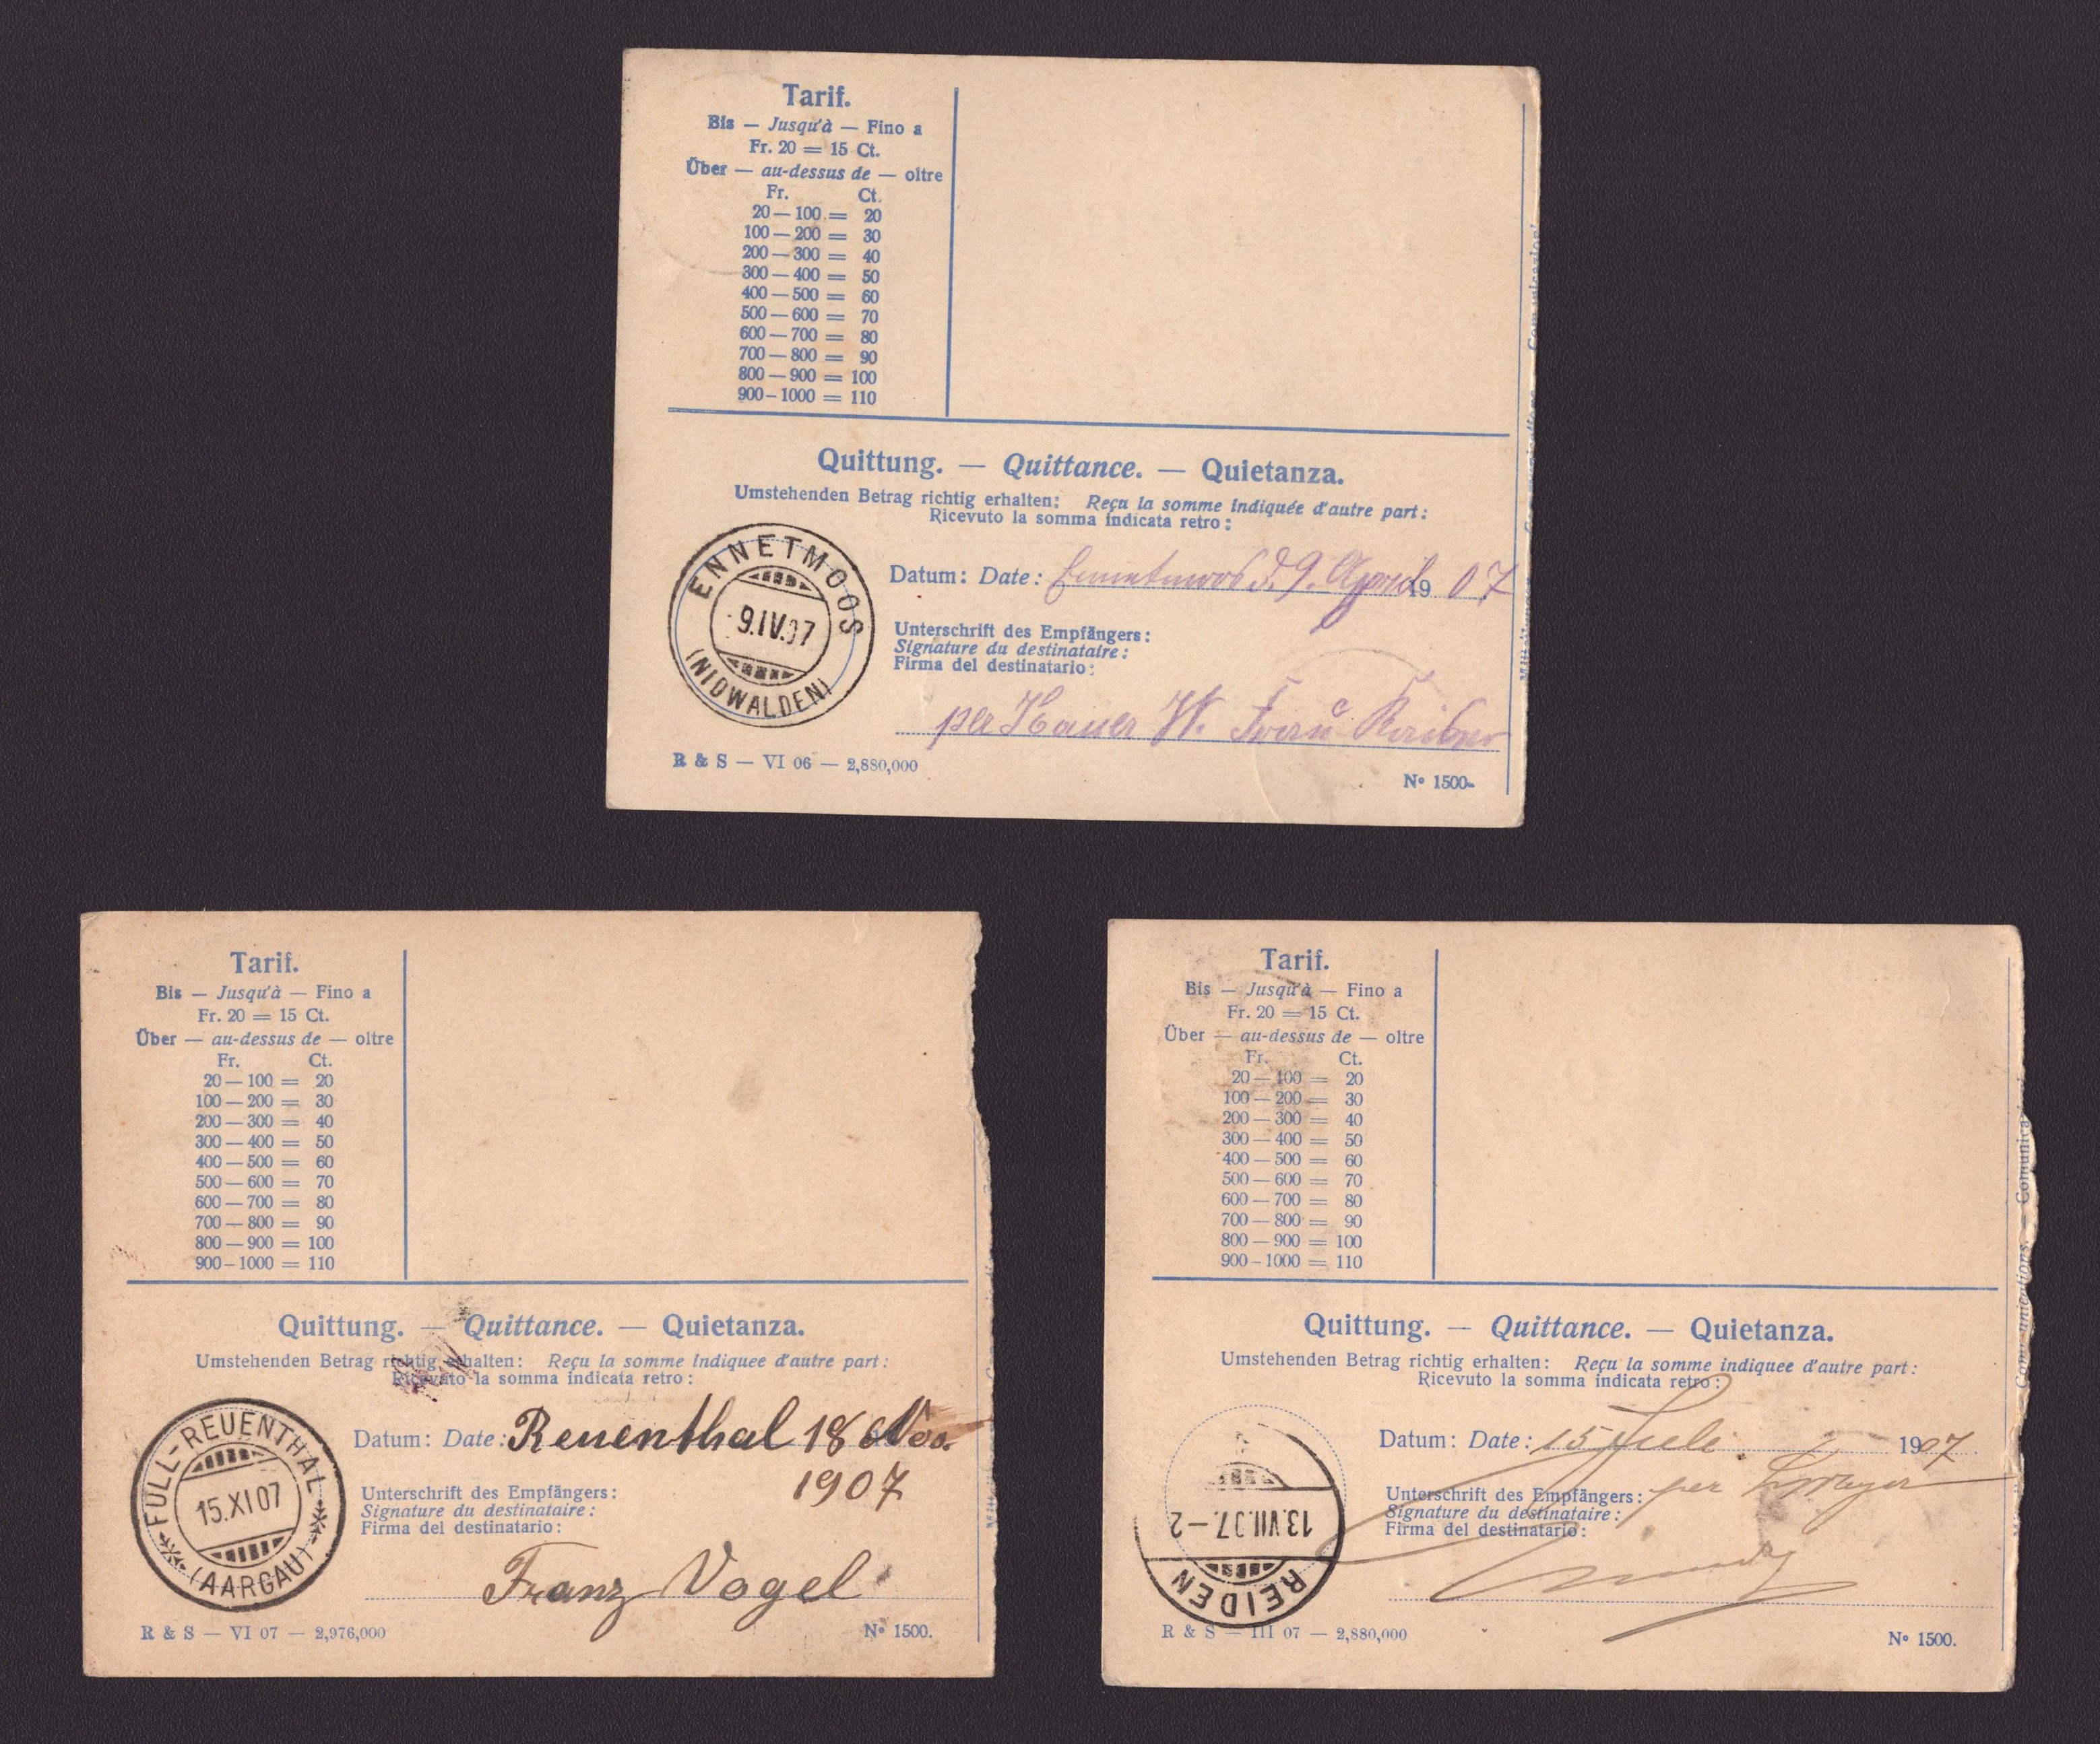 Tarif.
Bis — Jusqu'à — Fino a
Fr. 20 = 15 Ct.
Über — au-dessus de — oltre
Fr. Ct.
20 — 100 = 20
100 — 200 = 30
200 — 300 = 40
300 — 400 = 50
400 — 500 = 60
500 — 600 = 70
600 — 700 = 80
700 — 800 = 90
800 — 900 = 100
900 – 1000 = 110
Quittung. — Quittance. — Quietanza.
Umstehenden Betrag richtig erhalten: Reçu la somme indiquée d'autre part:
Ricevuto la somma indicata retro:
ENNETMOOS
9.IV.07
(NIDWALDEN)
Datum: Date: Ennetmoos d. 9. April 1907
Unterschrift des Empfängers:
Signature du destinataire:
Firma del destinatario:
per W. Frau
R & S — VI 06 — 2,880,000
No 1500.
Tarif.
Bis — Jusqu'à — Fino a
Fr. 20 = 15 Ct.
Über — au-dessus de — oltre
Fr. Ct.
20 — 100 = 20
100 — 200 = 30
200 — 300 = 40
300 — 400 = 50
400 — 500 = 60
500 — 600 = 70
600 — 700 = 80
700 — 800 = 90
800 — 900 = 100
900 – 1000 = 110
Quittung. — Quittance. — Quietanza.
Umstehenden Betrag richtig erhalten: Reçu la somme indiquee d'autre part:
Ricevuto la somma indicata retro:
FULL-REUENTHAL
15.XI 07
(AARGAU)
Datum: Date: Reuenthal 18 Nov.
1907
Unterschrift des Empfängers:
Signature du destinataire:
Firma del destinatario:
Franz Vogel
R & S — VI 07 — 2,976,000
No 1500.
Tarif.
Bis — Jusqu'à — Fino a
Fr. 20 = 15 Ct.
Über — au-dessus de — oltre
Fr. Ct.
20 — 100 = 20
100 — 200 = 30
200 — 300 = 40
300 — 400 = 50
400 — 500 = 60
500 — 600 = 70
600 — 700 = 80
700 — 800 = 90
800 — 900 = 100
900 – 1000 = 110
Communications. — Comunica
Quittung. — Quittance. — Quietanza.
Umstehenden Betrag richtig erhalten: Reçu la somme indiquee d'autre part:
Ricevuto la somma indicata retro:
13.VII.07.–2
REIDEN
Datum: Date: 15 Juli 1907
Unterschrift des Empfängers: per
Signature du destinataire:
Firma del destinatario:
R & S — III 07 — 2,880,000
No 1500.